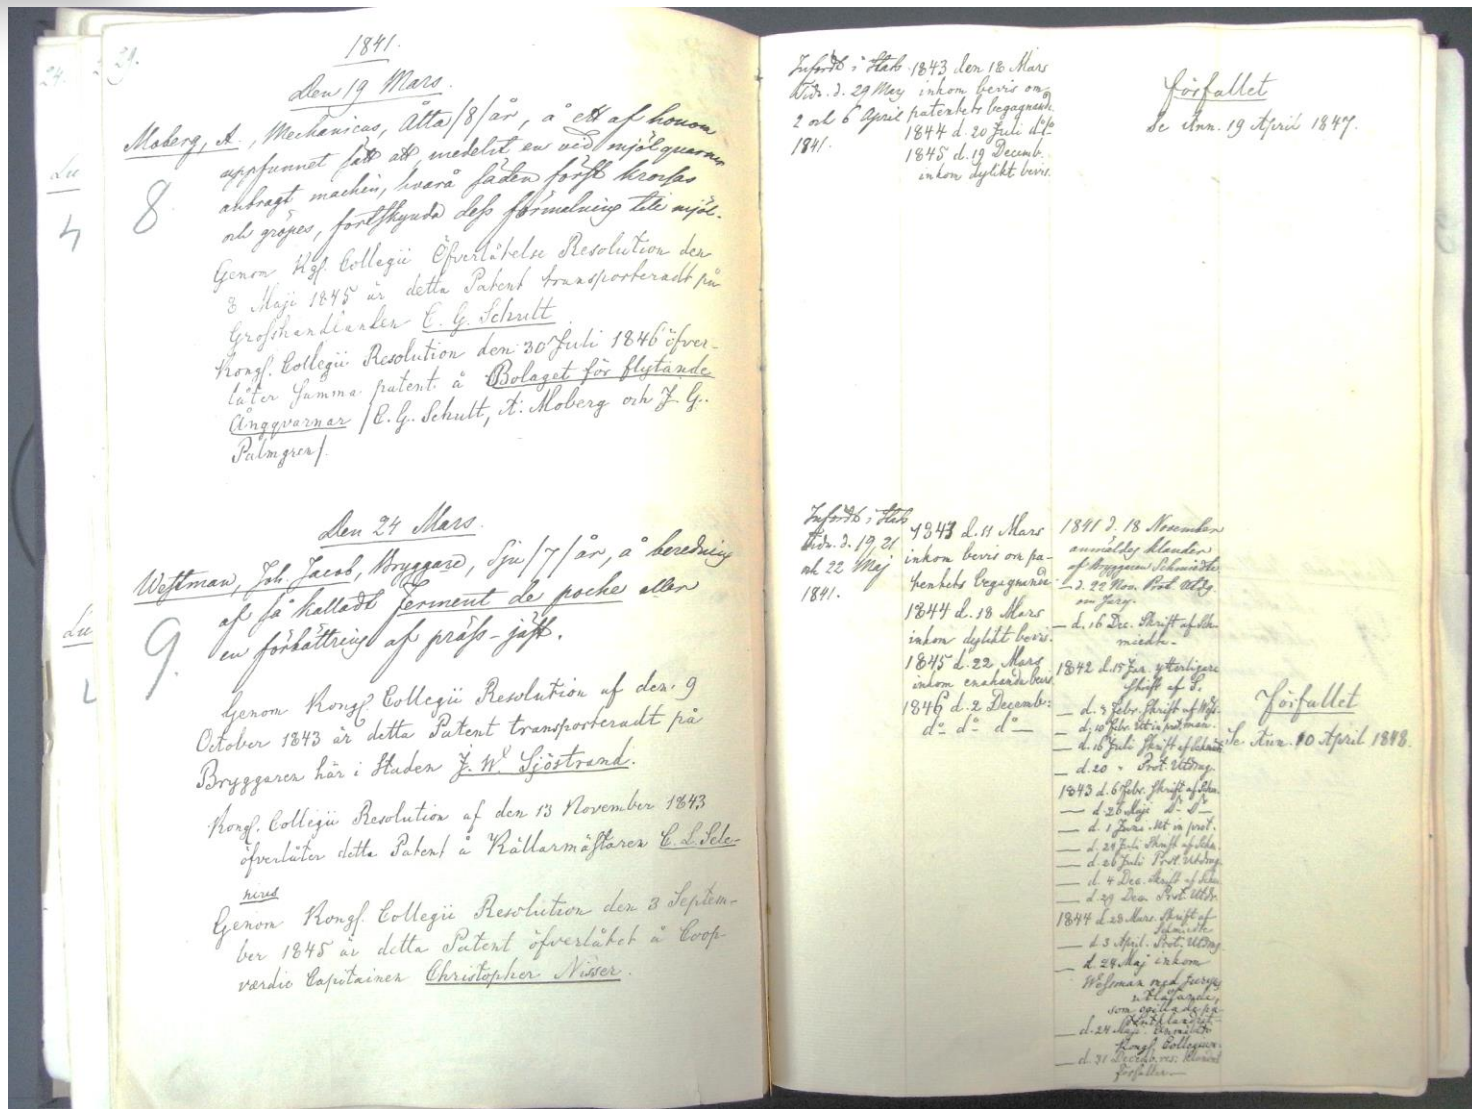 29.
1841.
Den 19 Mars.
Moberg, A., Mechanicus, Åtta /8/ år, å ett af honom
uppfunnet sätt att, medelst en vid mjölquarnar
anbragt machin, hvarå säden först krossas
och gröpes, fortskynda dess förmalning till mjöl.
8.
Genom Kgl. Collegii Öfverlåtelse Resolution den
8 Maji 1845 är detta Patent transporteradt på
Grosshandlanden C. G. Schult
Kongl. Collegii Resolution den 30 Juli 1846 öfver-
låter samma patent å Bolaget för flytande
Ångqvarnar /C. G. Schult, A. Moberg och J. G.
Palmgren/.
Den 24 Mars.
Westman, Joh. Jacob, Bryggare, Sju /7/ år, å beredning
af så kalladt ferment de poche eller
en förbättring af präss-jäst.
9.
Genom Kongl. Collegii Resolution af den 9
October 1843 är detta Patent transporteradt på
Bryggaren här i Staden J. W. Sjöstrand.
Kongl. Collegii Resolution af den 13 November 1843
öfverlåter detta Patent å Källarmästaren C. L. Sele-
nius
Genom Kongl. Collegii Resolution den 3 Septem-
ber 1845 är detta Patent öfverlåtet å Coop-
værdie Capitainen Christopher Nisser.
Infördt i Stats
Tidn. d. 29 Maj
2 och 6 April
1841.
1843 den 18 Mars
inkom bevis om
patentets begagnande
1844 d. 20 Juli do
1845 d. 19 Decemb.
inkom dylikt bevis.
förfallet
Se Ann. 19 April 1847.
Infördt i Stats
Tidn. d. 19, 21
och 22 Maj
1841.
1843 d. 11 Mars
inkom bevis om pa-
tentets begagnande
1844 d. 18 Mars
inkom dylikt bevis.
1845 d. 22 Mars
inkom enahanda bevis
1846 d. 2 Decemb:
do do do
1841 d. 18 November
anmäldes klander
af Bryggaren Schmiedte
— d. 22 Nov. Prot. Utdg.
om Jury.
— d. 16 Dec. Skrift af Sch-
miedte.
1842 d. 15 Jan. ytterligare
Skrift af S.
— d. 3 Febr. Skrift af
— d. 10 Febr.
— d. 16 Juli Skrift af Schmidt
— d. 20 " Prot. Utdrag.
1843 d. 6 Febr. Skrift af Schm.
— d. 26 Maji do do
— d. 1 Juni Ut in prot.
— d. 24 Juli Skrift af Schm.
— d. 26 Juli Prot. Utdrag.
— d. 4 Dec. Skrift af Schm
— d. 29 Dec. Prot. Utdr.
1844 d. 28 Mars. Skrift af
Schmiedte
— d. 3 April. Prot. Utdrag
— d. 24 Maj inkom
Westman med Jurys
utlåtande,
som
— d. 24 Maji.
Kongl. Collegium.
— d. 31 Decemb. res: klandret
förfaller—
Förfallet
Se Ann. 10 April 1848.